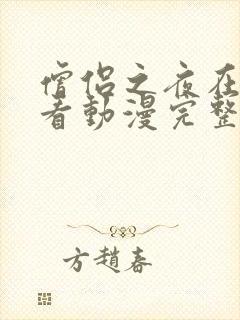 僧侶之夜在
看動漫完整
方趙春